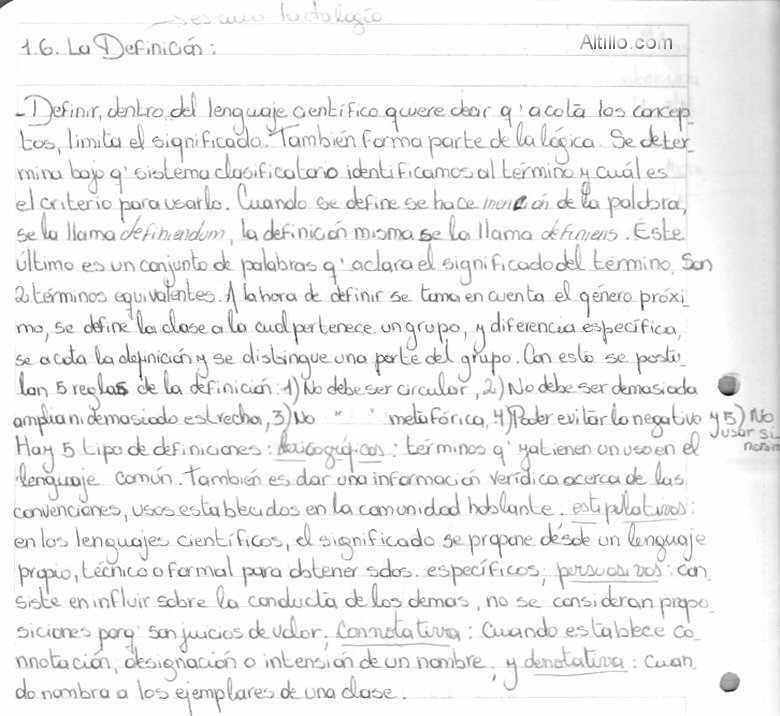 1.6. La Definición:
Altillo.com
- Definir, dentro del lenguaje científico quiere decir q' acota los concep_
tos, limita el significado. También forma parte de la lógica. Se deter_
mina bajo q' sistema clasificatorio identificamos al término y cuál es
el criterio para usarlo. Cuando se define se hace mención de la palabra,
se la llama definiendum, la definición misma se la llama definiens. Este
último es un conjunto de palabras q' aclara el significado del término. Son
2 términos equivalentes. A la hora de definir se toma en cuenta el género próxi_
mo, se define la clase a la cual pertenece un grupo, y diferencia específica,
se acota la definición y se distingue una parte del grupo. Con esto se postu_
lan 5 reglas de la definición: 1) No debe ser circular, 2) No debe ser demasiada
amplia ni demasiado estrecha, 3) No " " metafórica, 4) Poder evitar lo negativo y 5) No
usar si_
nónim
Hay 5 tipo de definiciones: lexicográficas: términos q' ya tienen un uso en el
lenguaje común. También es dar una información verídica acerca de las
convenciones, usos establecidos en la comunidad hablante. estipulativas:
en los lenguajes científicos, el significado se propone desde un lenguaje
propio, técnico o formal para obtener sdos. específicos; persuasivas: con_
siste en influir sobre la conducta de los demas, no se consideran propo_
siciones porq' son juicios de valor; Connotativa: Cuando establece co_
nnotación, designación o intensión de un nombre; y denotativa: Cuan_
do nombra a los ejemplares de una clase.